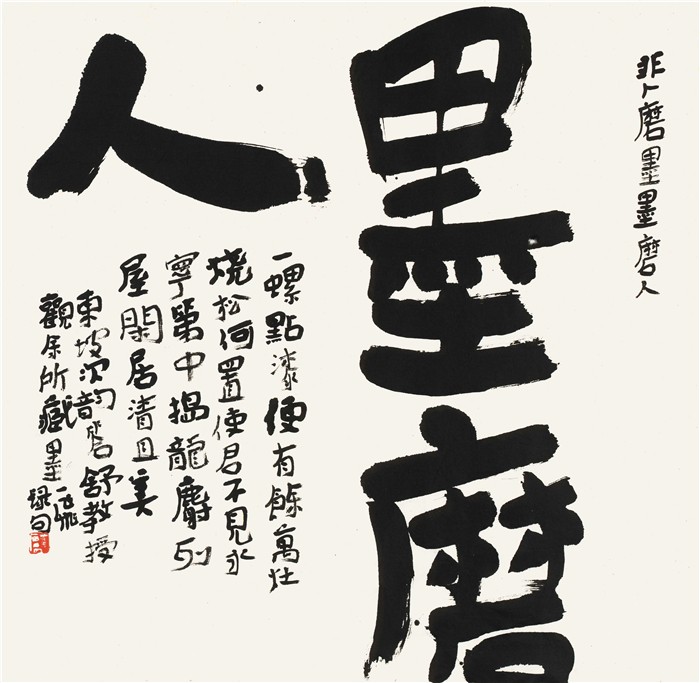 非人磨墨墨磨人
墨磨
人
一螺點漆便有餘萬灶
燒松何置使君不見永
寧第中搗龍麝列
屋閑居清且美
東坡次韵答舒教授
觀余所藏墨
録句